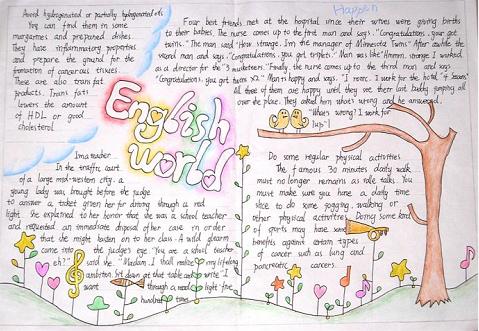 Avoid hydrogenated or partially hydrogenated oils
You can find them in some
margarines and prepared dishes.
They have inflammatory properties
and prepare the ground for the
formation of cancerous tissues.
These are also trans fat
products. Trans fats
lowers the amount
of HDL or good
cholesterol
Happen
Four best friends met at the hospital since their wives were giving births
to their babies. The nurse comes up to the first man and says, "Congratulations, your got
twins." The man said "How strange, I'm the manager of Minnesota Twins." After awhile the
second man and says, "Congratulations, you got triplets." Man was like "Hmmm, strange I worked
as a director for the "3 musketeers." Finally, the nurse comes up to the third man and says
"Congratulations, you got twins x2." Man is happy and says, "I work for the hotel "4 seasons"
All three of them are happy until they see their last buddy jumping all
over the place. They asked him what's wrong and he answered,
"What's wrong? I work for
7up"!
English
world
I'm a teacher
In the traffic court
of a large mid-western city, a
young lady was brought before the judge
to answer a ticket given her for driving through a red
light. She explained to her honor that she was a school teacher
and requested an immediate disposal of her case in order
that she might hasten on to her class. A wild gleam
came into the judge's eye. "You are a school teach-
er, eh?" said he. "Madam, I shall realize my lifelong
ambition. Sit down at that table and write "I
went through a red light" five
hundred times
Do some regular physical activities.
The famous 30 minutes daily walk
must no longer remains as role talks. You
must make sure you have a daily time
slice to do some jogging, walking or
other physical activities. Doing some kind
of sports may have some
benefits against certain types
of cancer such as lung and
pancreatic cancers.